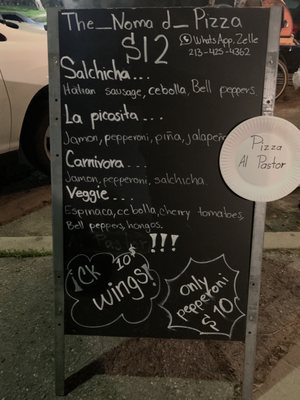 The_Nomad_Pizza
$12
WhatsApp, Zelle
213-425-4362
Salchicha...
Italian sausage, cebolla, Bell peppers.
La picosita...
Jamon, pepperoni, piña, jalapeño
Carnivora...
Jamon, pepperoni, salchicha.
Veggie...
Espinaca, cebolla, cherry tomatoes,
Bell peppers, hongos.
!!!
Pizza
Al Pastor
10$
wings!
only
pepperoni
$10